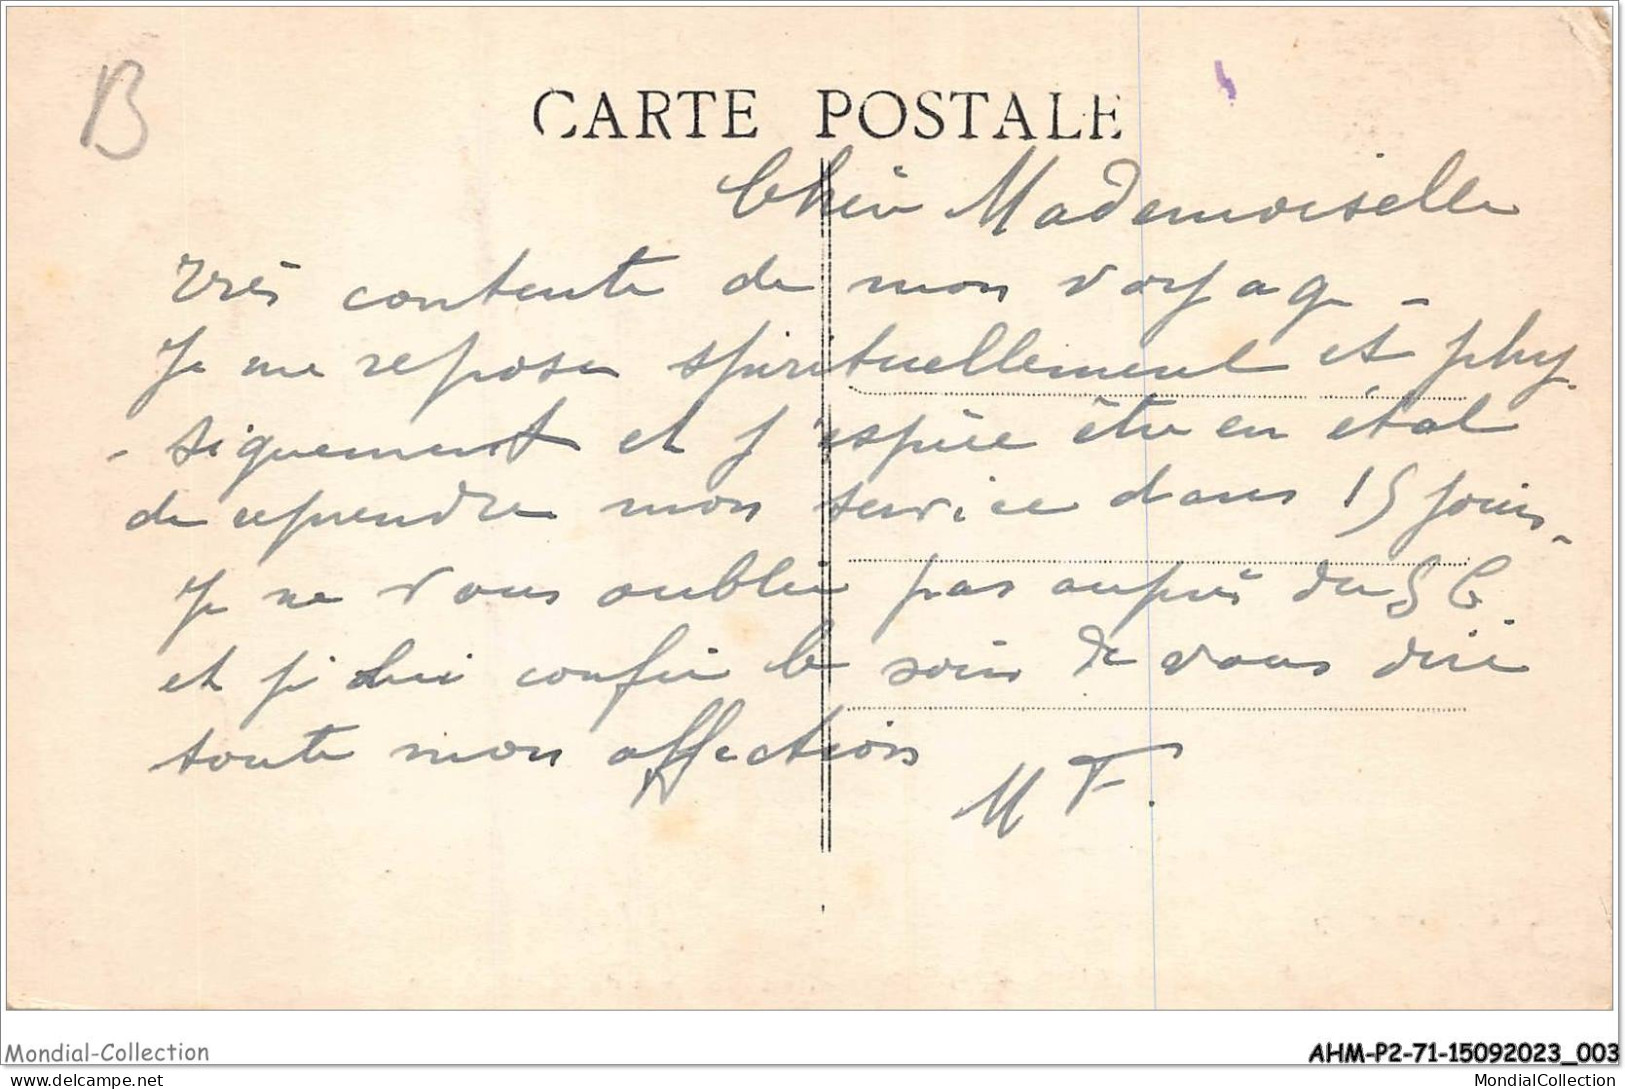 B
CARTE POSTALE
Chère Mademoiselle
Très contente de mon voyage -
Je me repose spirituellement et phy-
- siquement et j'espère être en état
de reprendre mon service dans 15 jours -
Je ne vous oublie pas auprès du S C
et je lui confie le soin de vous dire
toute mon affection
M F.
Mondial-Collection
AHM-P2-71-15092023_003
delcampe.net
MondialCollection